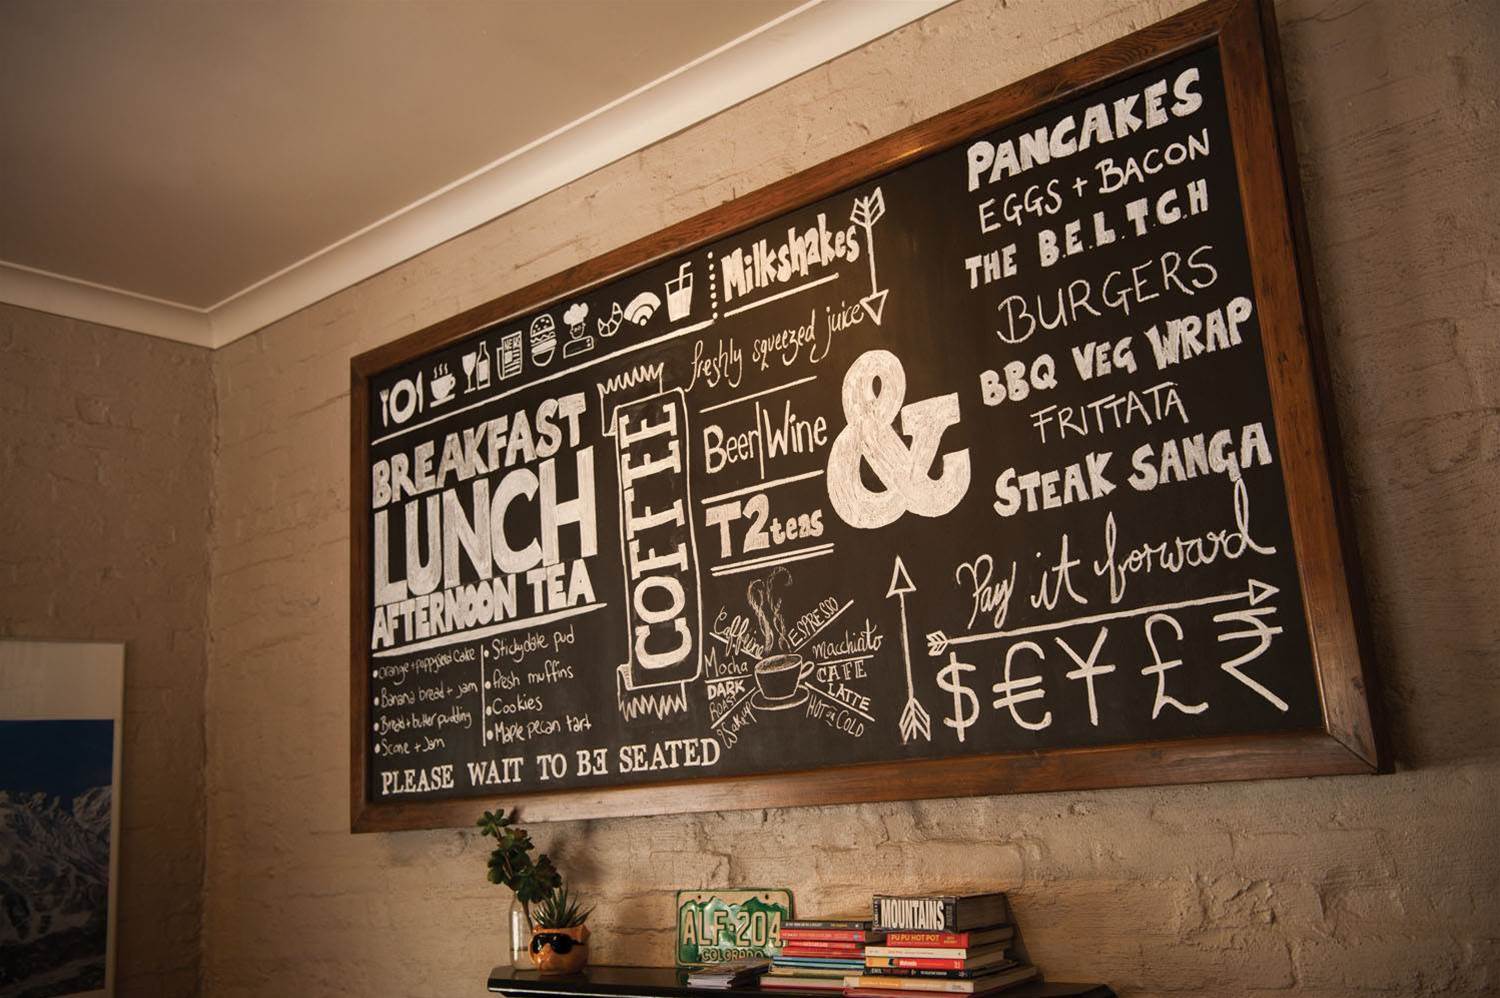 NEWS
BREAKFAST
LUNCH
AFTERNOON TEA
Orange + poppyseed cake
Banana bread + jam
Bread + butter pudding
Scone + Jam
Stickydate pud
fresh muffins
Cookies
Maple pecan tart
PLEASE WAIT TO BE SEATED
COFFEE
Milkshakes
freshly squeezed juice
Beer|Wine
T2 teas
&
Caffeine
ESPRESSO
Mocha
macchiato
DARK
ROAST
CAFE
LATTE
HOT or COLD
PANCAKES
EGGS + BACON
THE B.E.L.T.C.H
BURGERS
BBQ VEG WRAP
FRITTATA
STEAK SANGA
Pay it forward
$ € ¥ £ ₹
ALF-204
COLORADO
MOUNTAINS
PU PU HOT POT